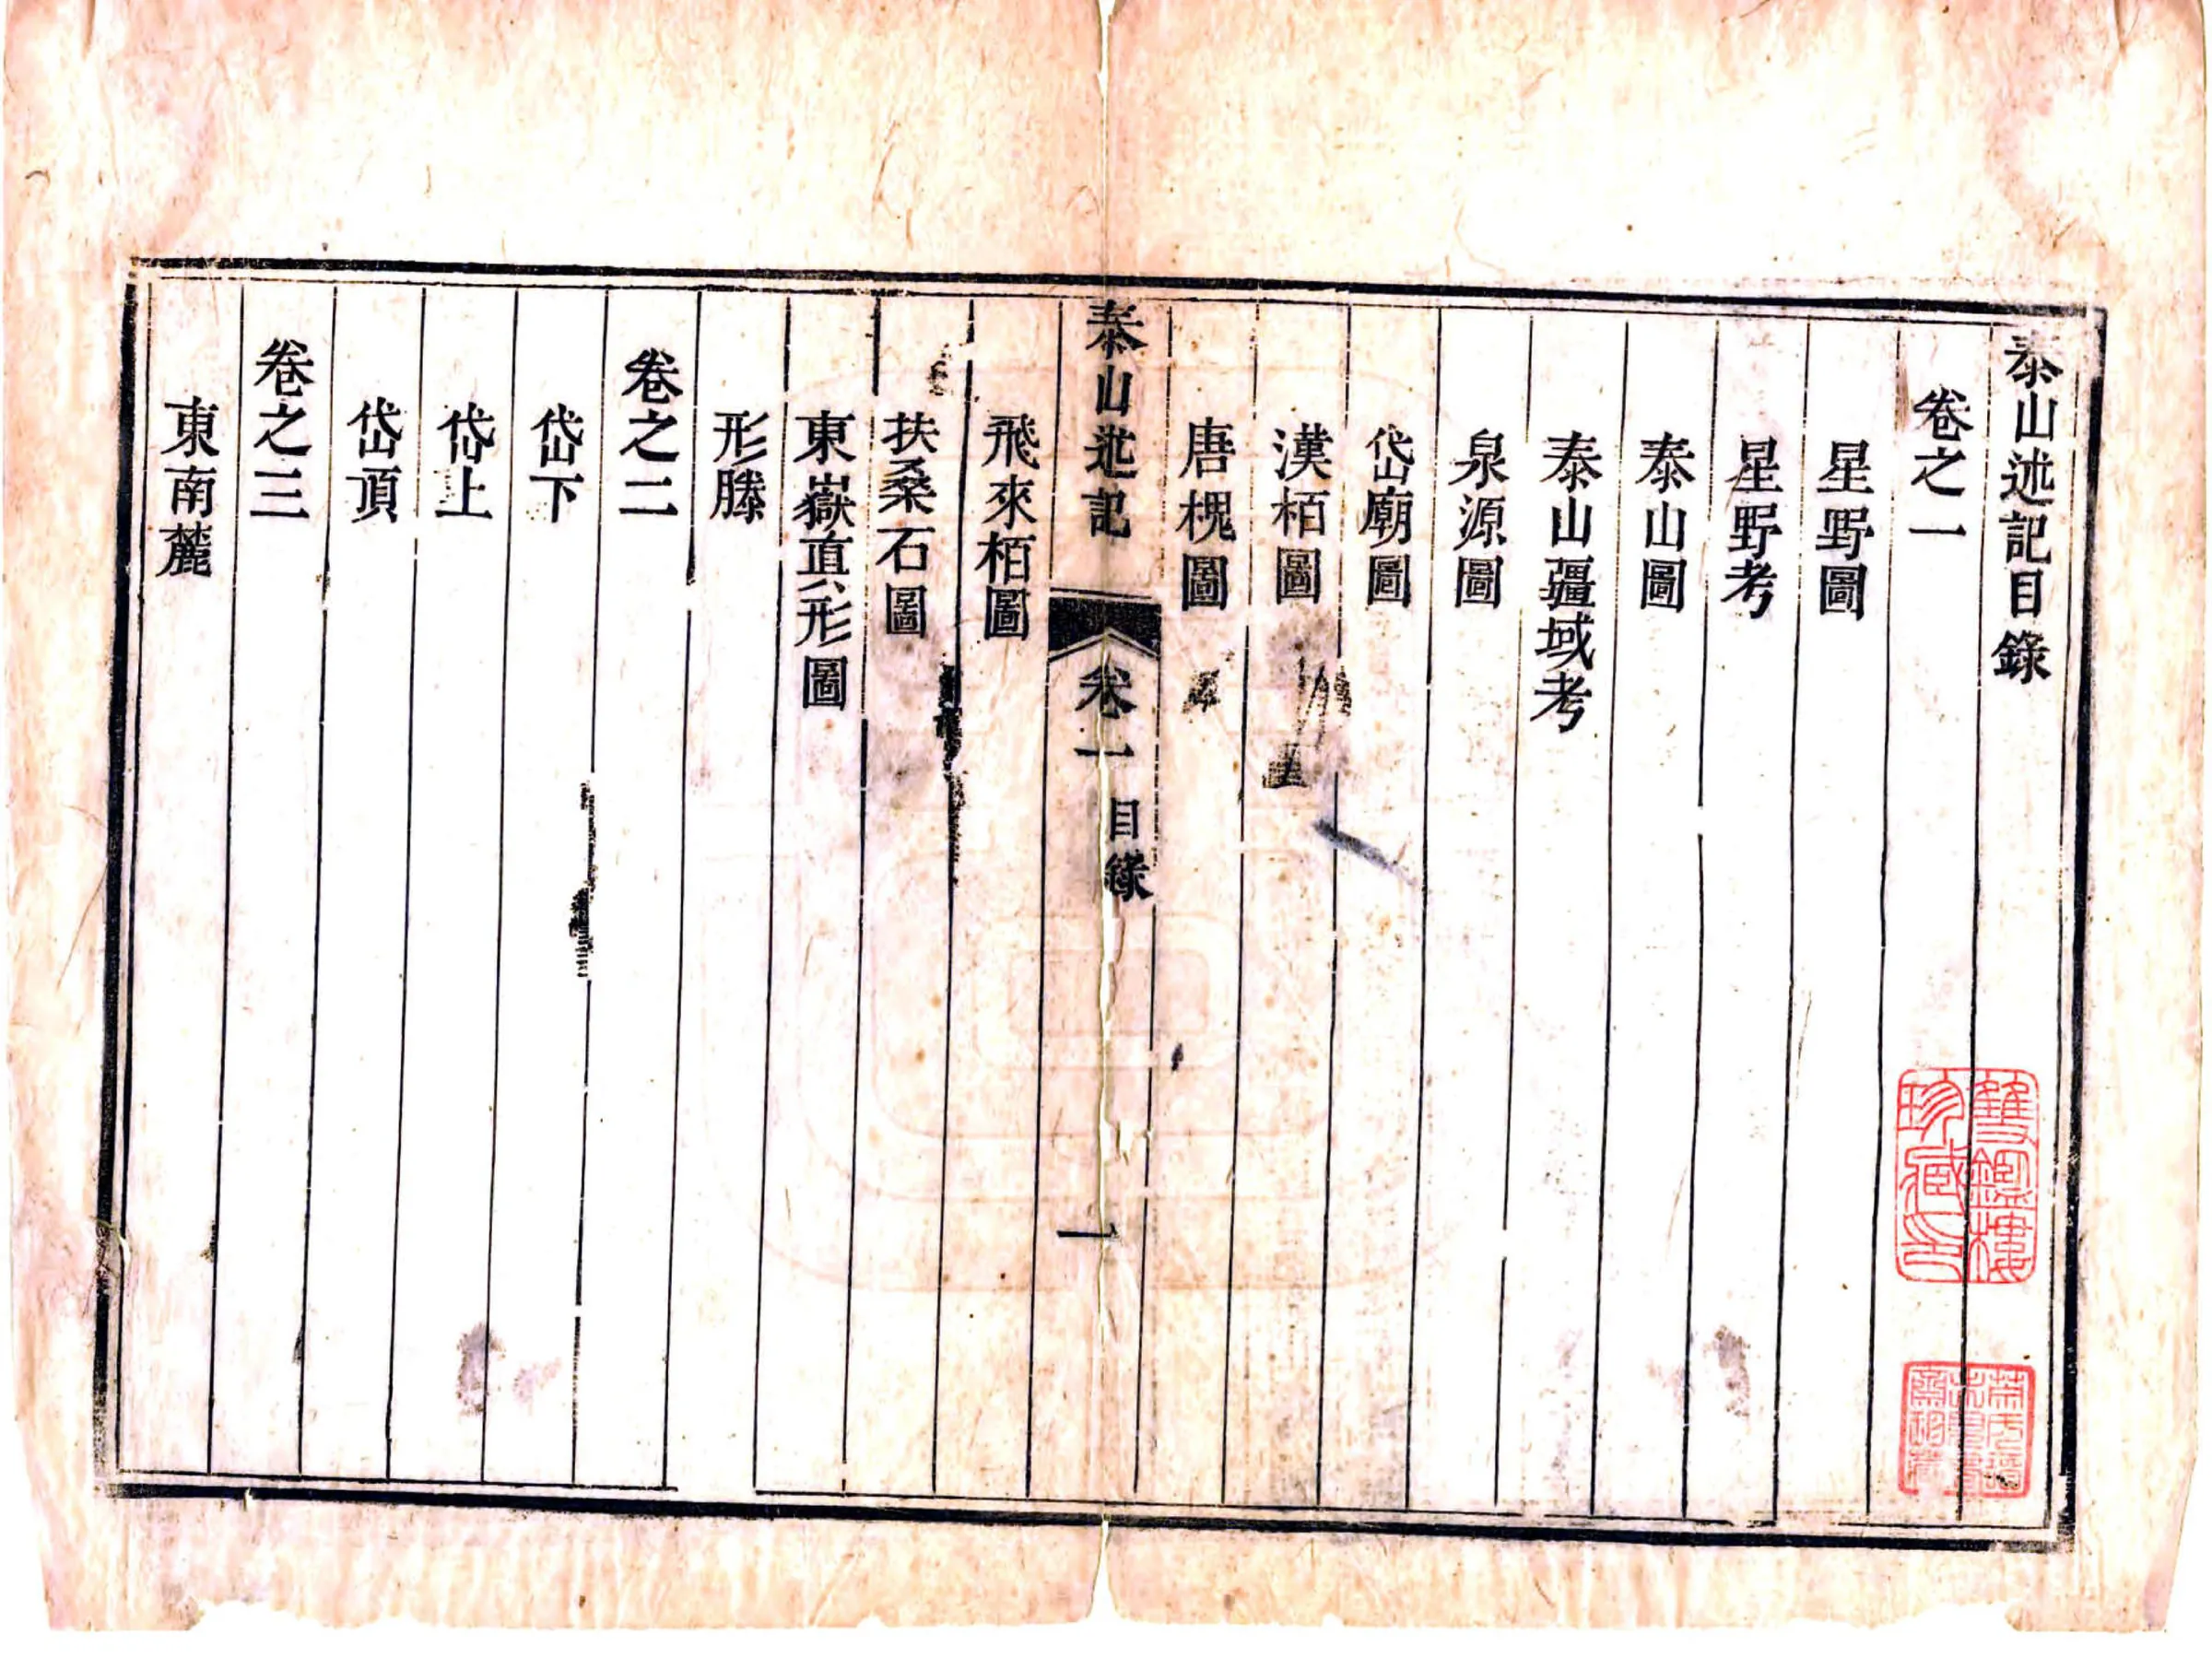 泰山述記目錄
卷之一
星野圖
星野考
泰山圖
泰山疆域考
泉源圖
岱廟圖
漢栢圖
唐槐圖
泰山述記
卷一
目錄
一
飛來栢圖
扶桑石圖
東嶽真形圖
形勝
卷之二
岱下
岱上
岱頂
卷之三
東南麓
雙鑑樓
珍藏印